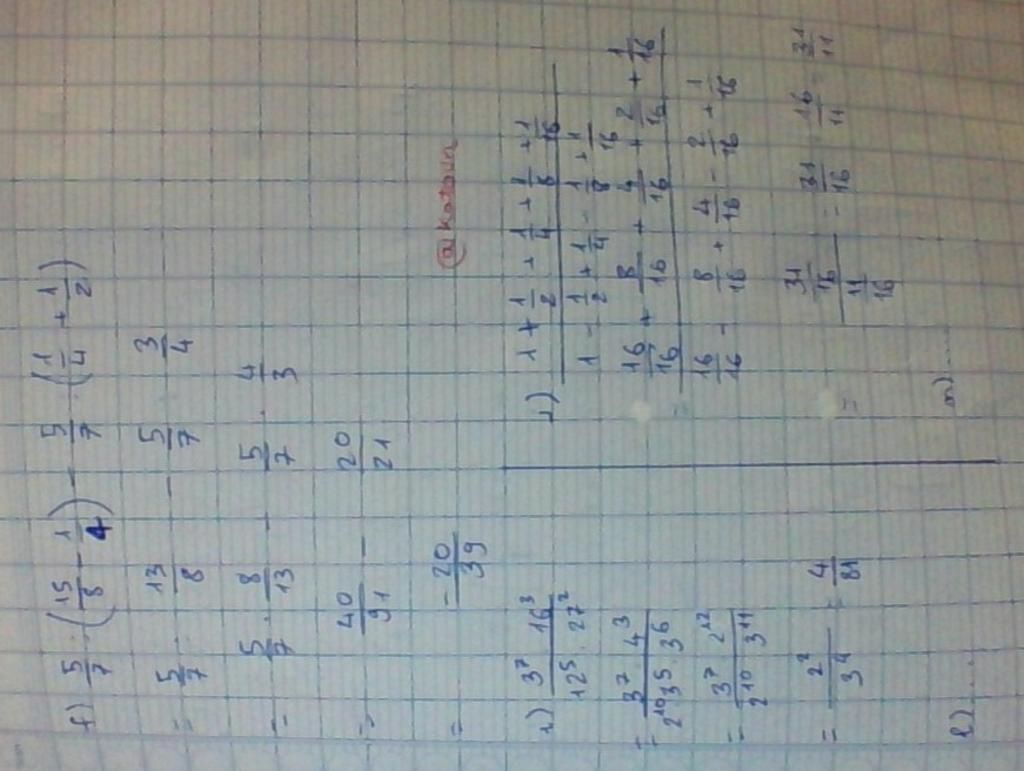 f) 5/7 : (15/8 - 1/4) - 5/7 : (1/4 + 1/2)
= 5/7 : 13/8 - 5/7 : 3/4
= 5/7 · 8/13 - 5/7 · 4/3
= 40/91 - 20/21
= - 20/39
3⁷ 16³
12⁵ · 27²
= 3⁷ 4³
2¹⁰ 3⁵ · 3⁶
= 3⁷ 2¹²
2¹⁰ 3¹¹
= 2²/3⁴ = 4/81
1 + 1/2 + 1/4 + 1/8 + 1/16
1 - 1/2 + 1/4 - 1/8 + 1/16
= 16/16 + 8/16 + 4/16 + 2/16 + 1/16
16/16 - 8/16 + 4/16 - 2/16 + 1/16
= 31/16 / 11/16 = 31/16 · 16/11 = 31/11